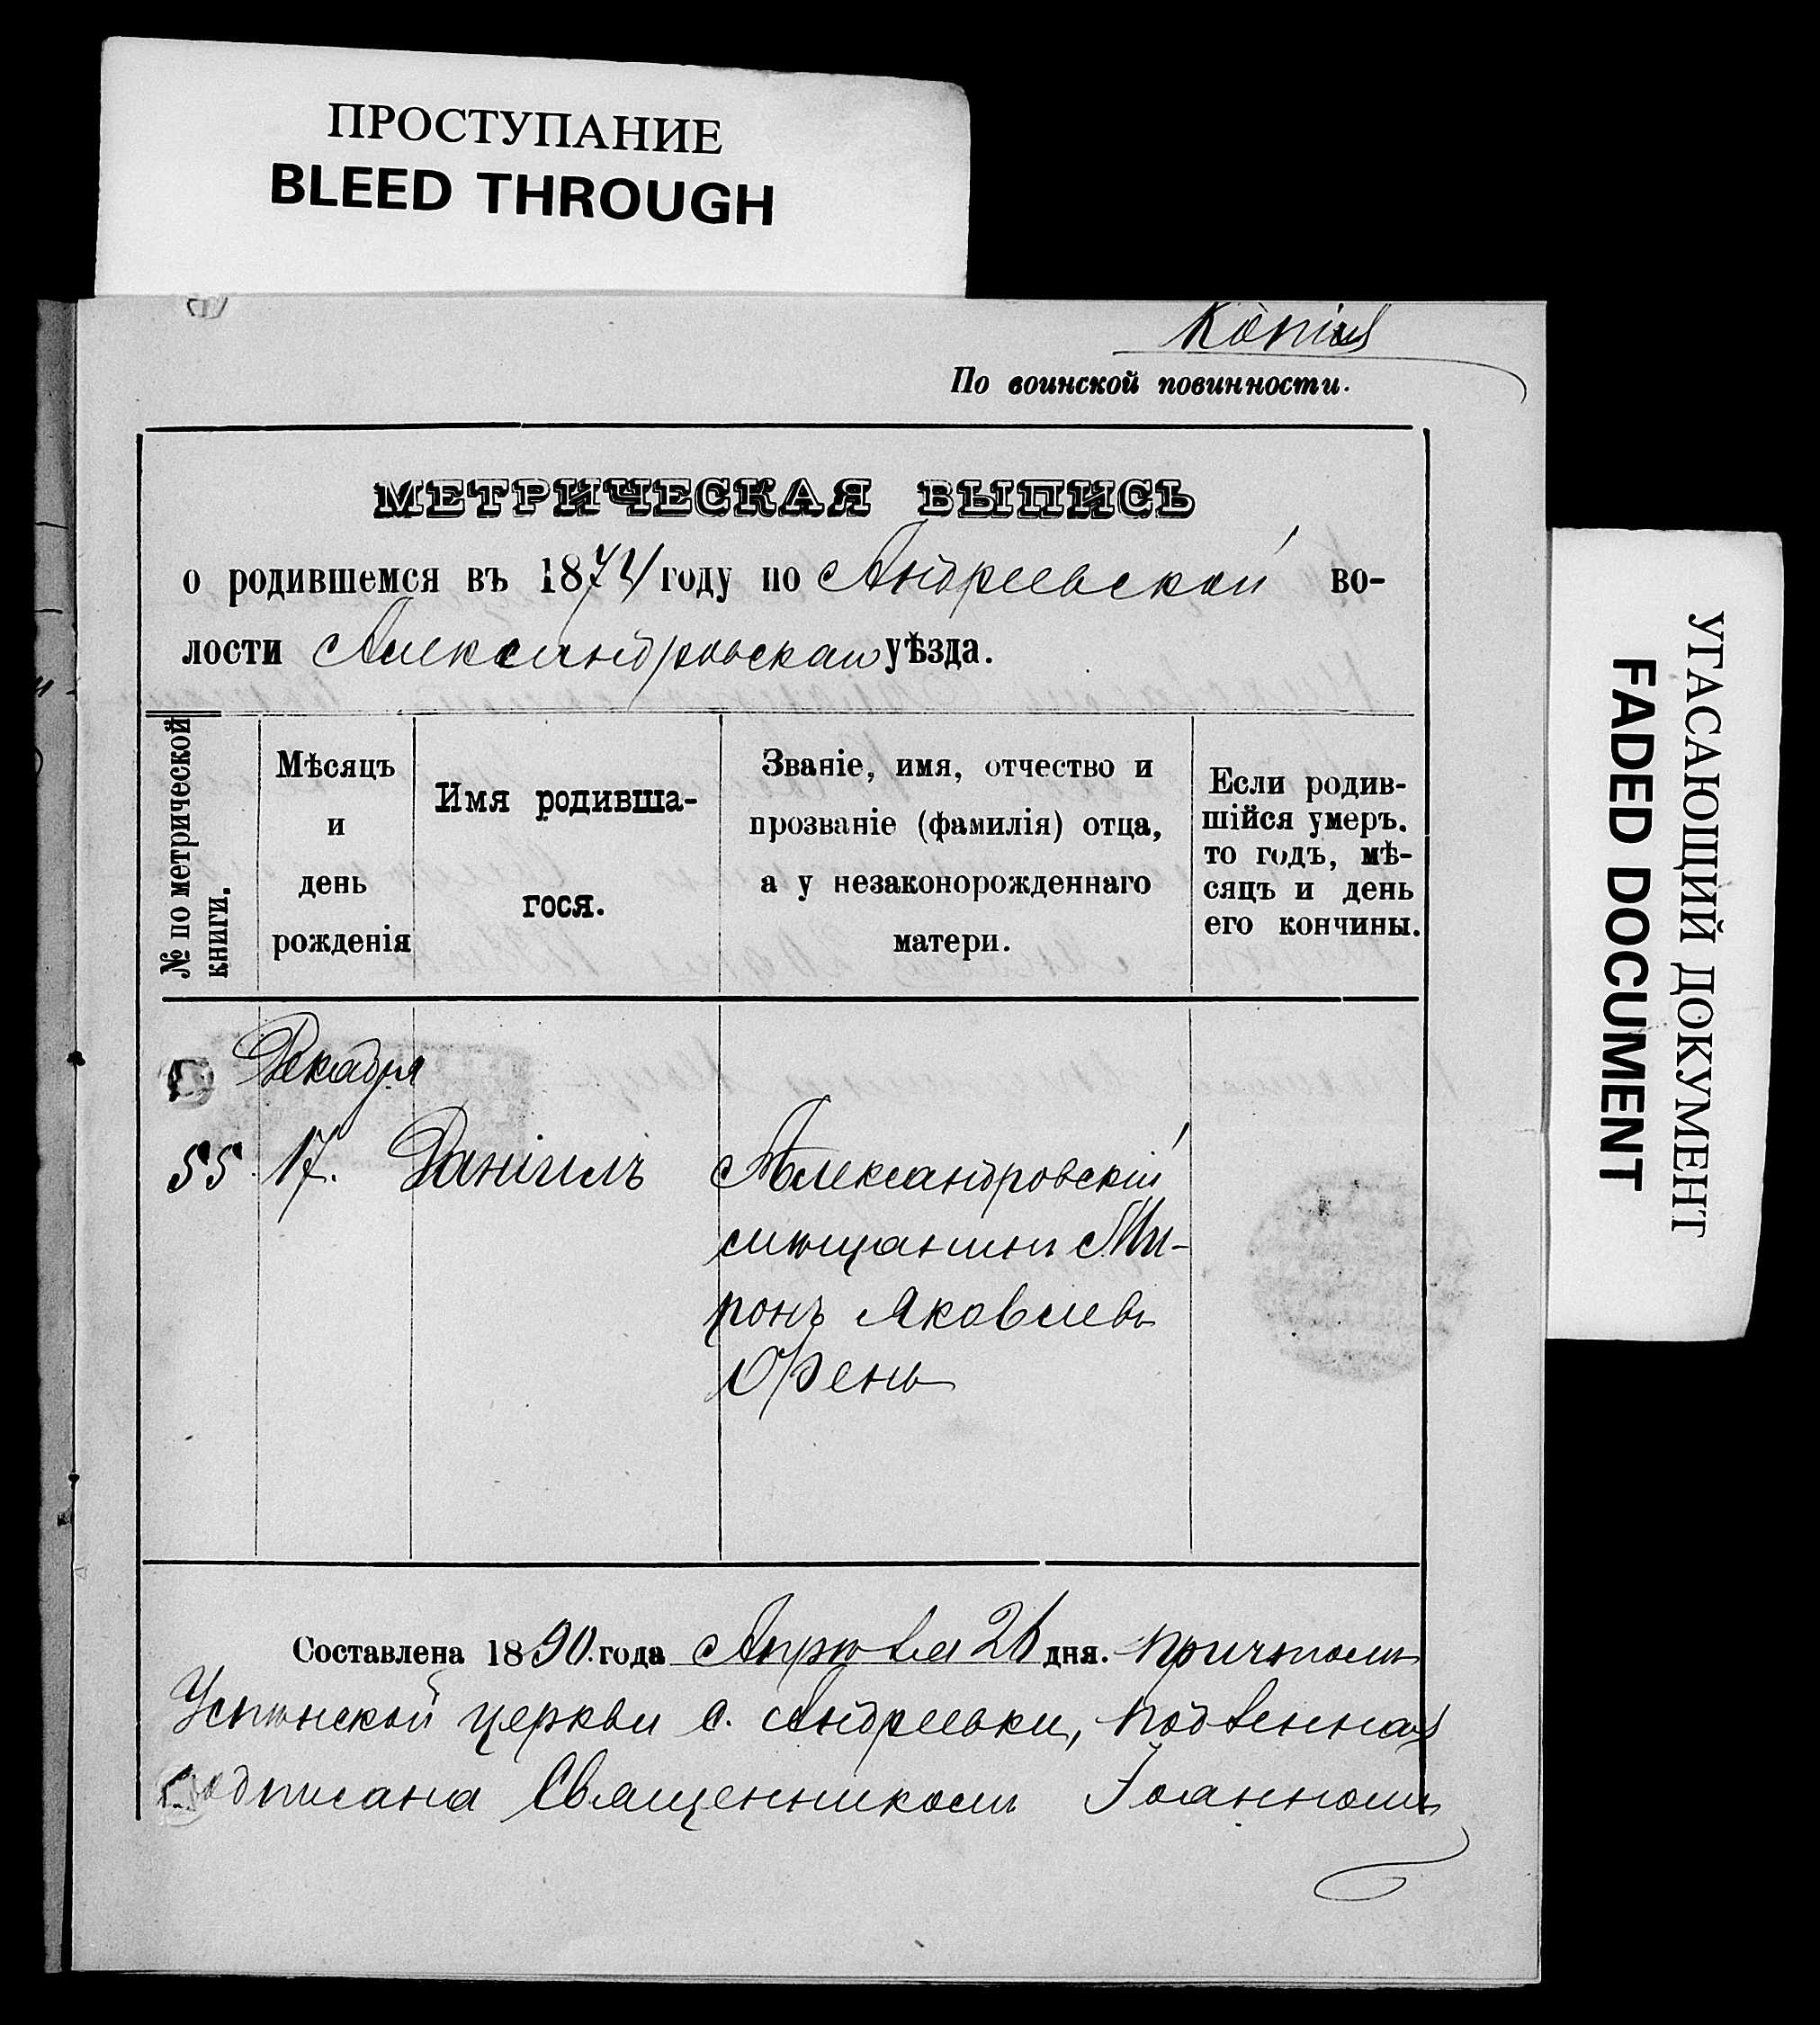 ПРОСТУПАНИЕ
BLEED THROUGH
Копія
По воинской повинности.
МЕТРИЧЕСКАЯ ВЫПИСЬ
о родившемся въ 1874 году по Андреевской во-
лости Александровскаго уѣзда.
№ по метрической
книги.
Мѣсяцъ
и
день
рожденія
Имя родивша-
гося.
Званіе, имя, отчество и
прозваніе (фамилія) отца,
а у незаконорожденнаго
матери.
Если родив-
шійся умеръ.
то годъ, мѣ-
сяцъ и день
его кончины.
Декабря
55. 17. Даніилъ Александровскій
мѣщанинъ Ми-
ронъ Яковлевъ
Орень
Составлена 1890 года Апрѣля 26 дня. Причтомъ
Успенской церкви с. Андреевки,
подписана Священникомъ Іоанномъ
УГАСАЮЩИЙ ДОКУМЕНТ
FADED DOCUMENT